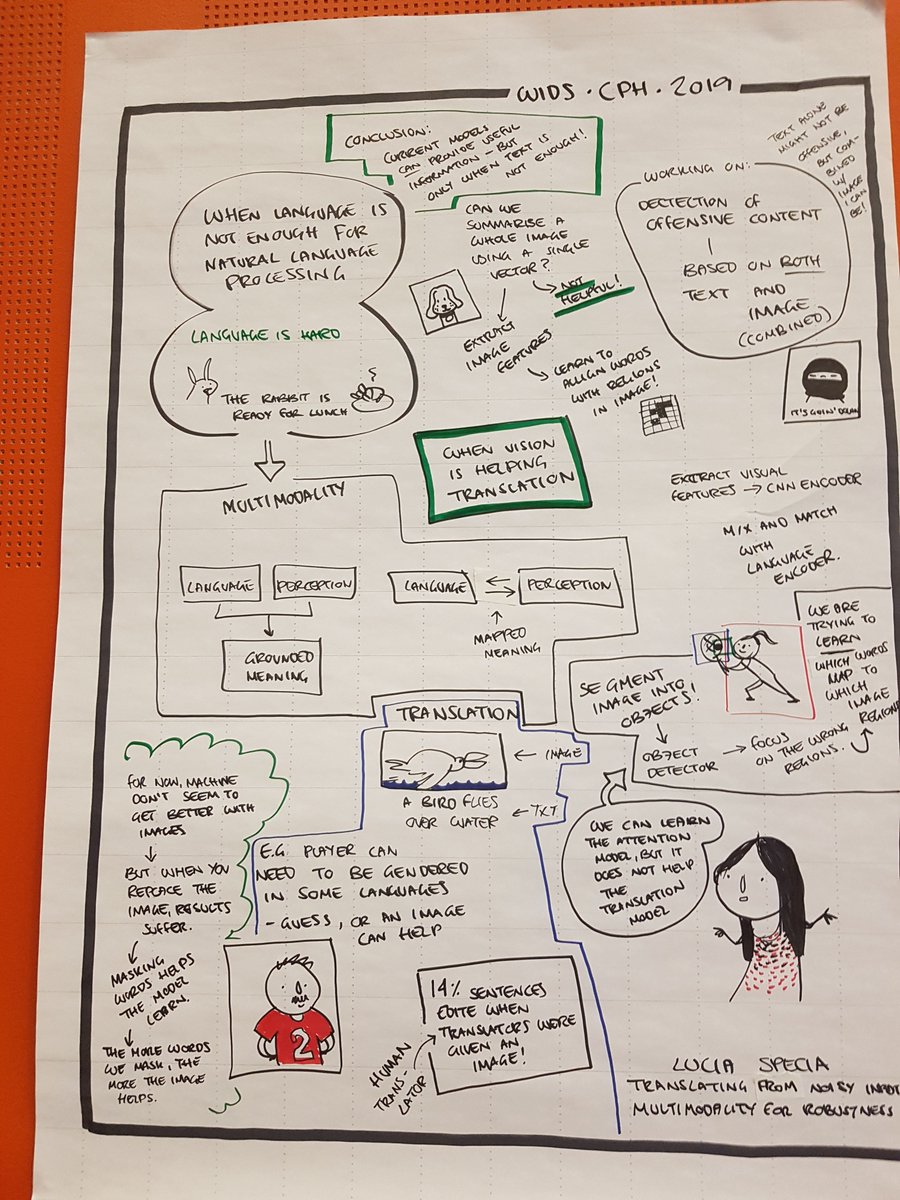 WIDS · CPH · 2019
CONCLUSION:
CURRENT MODELS
CAN PROVIDE USEFUL
INFORMATION - BUT
ONLY WHEN TEXT IS
NOT ENOUGH!
TEXT ALONE
MIGHT NOT BE
OFFENSIVE,
BUT COM-
BINED
W/
IMAGE
I CAN
BE!
WHEN LANGUAGE IS
NOT ENOUGH FOR
NATURAL LANGUAGE
PROCESSING
LANGUAGE IS HARD
THE RABBIT IS
READY FOR LUNCH
CAN WE
SUMMARISE A
WHOLE IMAGE
USING A SINGLE
VECTOR?
NOT
HELPFUL!
EXTRACT
IMAGE
FEATURES
LEARN TO
ALLIGN WORDS
WITH REGIONS
IN IMAGE!
WORKING ON:
DECTECTION OF
OFFENSIVE CONTENT
BASED ON BOTH
TEXT AND
IMAGE
(COMBINED)
IT'S GOIN' DOWN
WHEN VISION
IS HELPING
TRANSLATION
EXTRACT VISUAL
FEATURES → CNN ENCODER
MIX AND MATCH
WITH
LANGUAGE
ENCODER.
MULTIMODALITY
LANGUAGE
PERCEPTION
GROUNDED
MEANING
LANGUAGE
PERCEPTION
MAPPED
MEANING
WE ARE
TRYING TO
LEARN
WHICH WORDS
MAP TO
WHICH
IMAGE
REGIONS
SEGMENT
IMAGE INTO
OBJECTS!
OBJECT
DETECTOR
→ FOCUS
ON THE WRONG
REGIONS.
TRANSLATION
← IMAGE
A BIRD FLIES
OVER WATER
← TXT
E.G. PLAYER CAN
NEED TO BE GENDERED
IN SOME LANGUAGES
- GUESS, OR AN IMAGE
CAN HELP
2
14% SENTENCES
EDITE WHEN
TRANSLATORS WERE
GIVEN AN
IMAGE!
HUMAN
TRANS
LATOR
FOR NOW, MACHINE
DON'T SEEM TO
GET BETTER WITH
IMAGES
BUT WHEN YOU
REPLACE THE
IMAGE, RESULTS
SUFFER.
MASKING
WORDS HELPS
THE MODEL
LEARN.
THE MORE WORDS
WE MASK, THE
MORE THE IMAGE
HELPS.
WE CAN LEARN
THE ATTENTION
MODEL, BUT IT
DOES NOT HELP
THE
TRANSLATION
MODEL
LUCIA SPECIA
TRANSLATING FROM NOISY INPUT
MULTIMODALITY FOR ROBUSTNESS